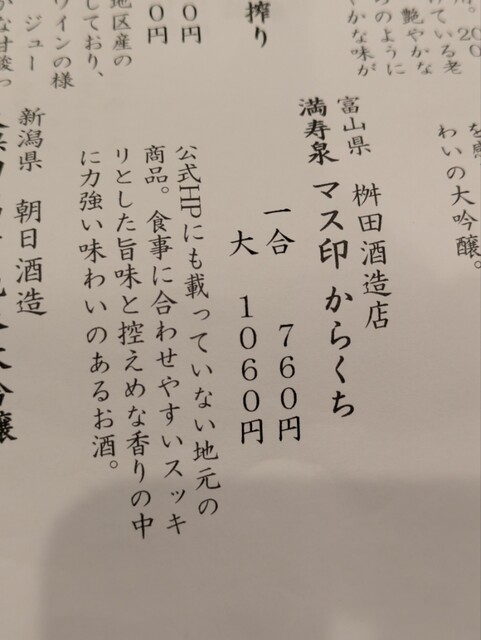 を
わいの大吟醸。
艶やかな
のように
やかな味が
富山県　桝田酒造店
満寿泉　マス印からくち
一合　７６０円
大　１０６０円
公式HPにも載っていない地元の
商品。食事に合わせやすいスッキ
リとした旨味と控えめな香りの中
に力強い味わいのあるお酒。
搾り
０円
０円
地区産の
しており、
ワインの様
ジュー
新潟県　朝日酒造